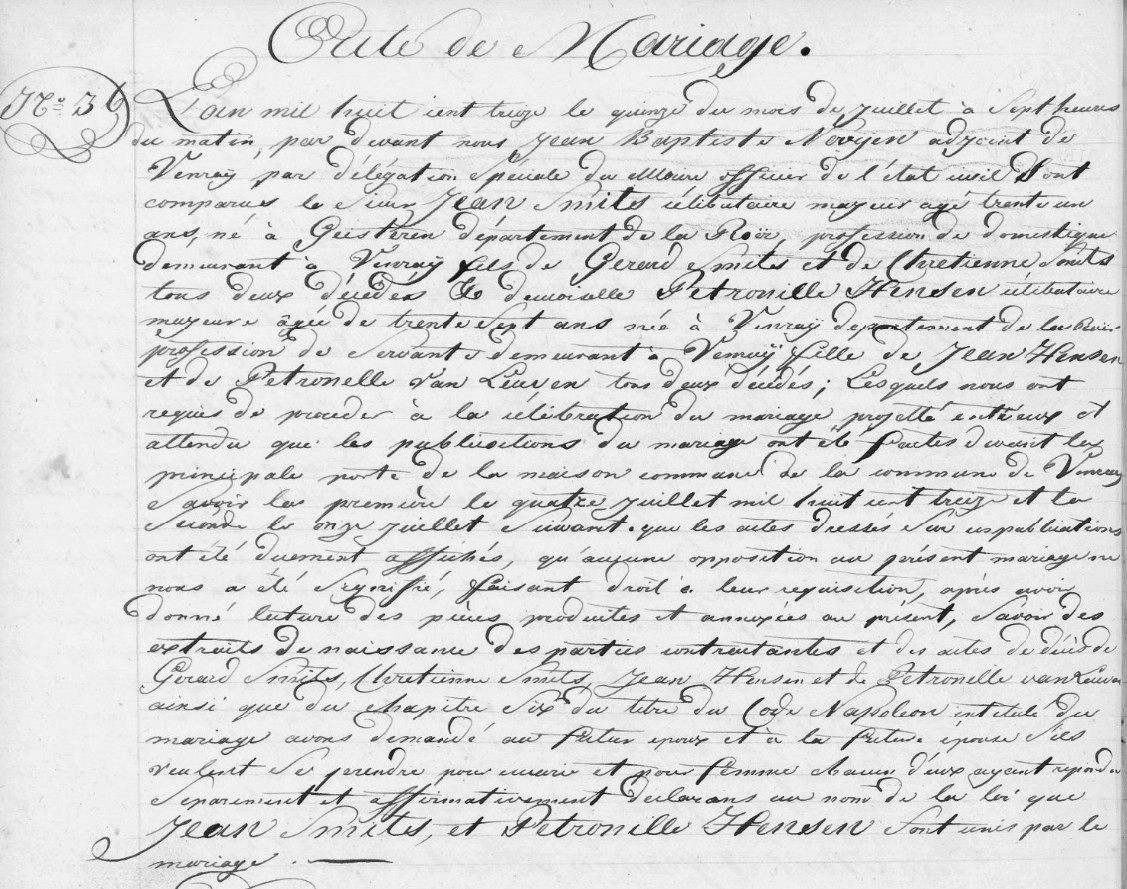 Acte de Mariage.
N.º 36
L'an mil huit cent treize le quinze du mois de juillet à Sept heures
du matin, par devant nous Jean Baptiste Novÿen adjoint de
Venraÿ par délégation Spéciale du Maire officier de l'état civil Sont
comparus le Sieur Jean Smits célibataire majeur agé trente un
ans, né à Geisteren département de la Roër, profession de domestique
demeurant à Venraÿ fils de Gerard Smits et de Chretienne Smits
tous deux décédés & demoiselle Petronille Hensen célibataire
majeure âgée de trente Sept ans née à Venraÿ departement de la Roër
profession de Servante demeurant à Venraÿ fille de Jean Hensen
et de Petronelle van Leuven tous deux décédés; Lesquels nous ont
requis de proceder à la célébration du mariage projetté entreeux et
attendu que les publications du mariage ont été faites devant la
principale porte de la maison commune de la commune de Venray
Savoir la première le quatre juillet mil huit cent treize et la
Seconde le onze juillet Suivant. que les actes dressés Sur ces publications
ont été duement affichés, qu'aucune opposition au présent mariage ne
nous a été Signifié, faisant droit à leur réquisition, après avoir
donné lecture des pièces produites et annexées au présent, Savoir des
extraits de naissance des parties contractantes et des actes de décès de
Gerard Smits, Chretienne Smits, Jean Hensen et de Petronille van Leuven
ainsi que du chapitre Six du titre du Code Napoleon intitulé du
mariage avons demandé au futur epoux et à la future épouse S'ils
veulent Se prendre pour mari et pour femme chacun d'eux ayant repondu
Separement et affirmativement declarons au nom de la loi que
Jean Smits, et Petronille Hensen Sont unis par le
mariage.